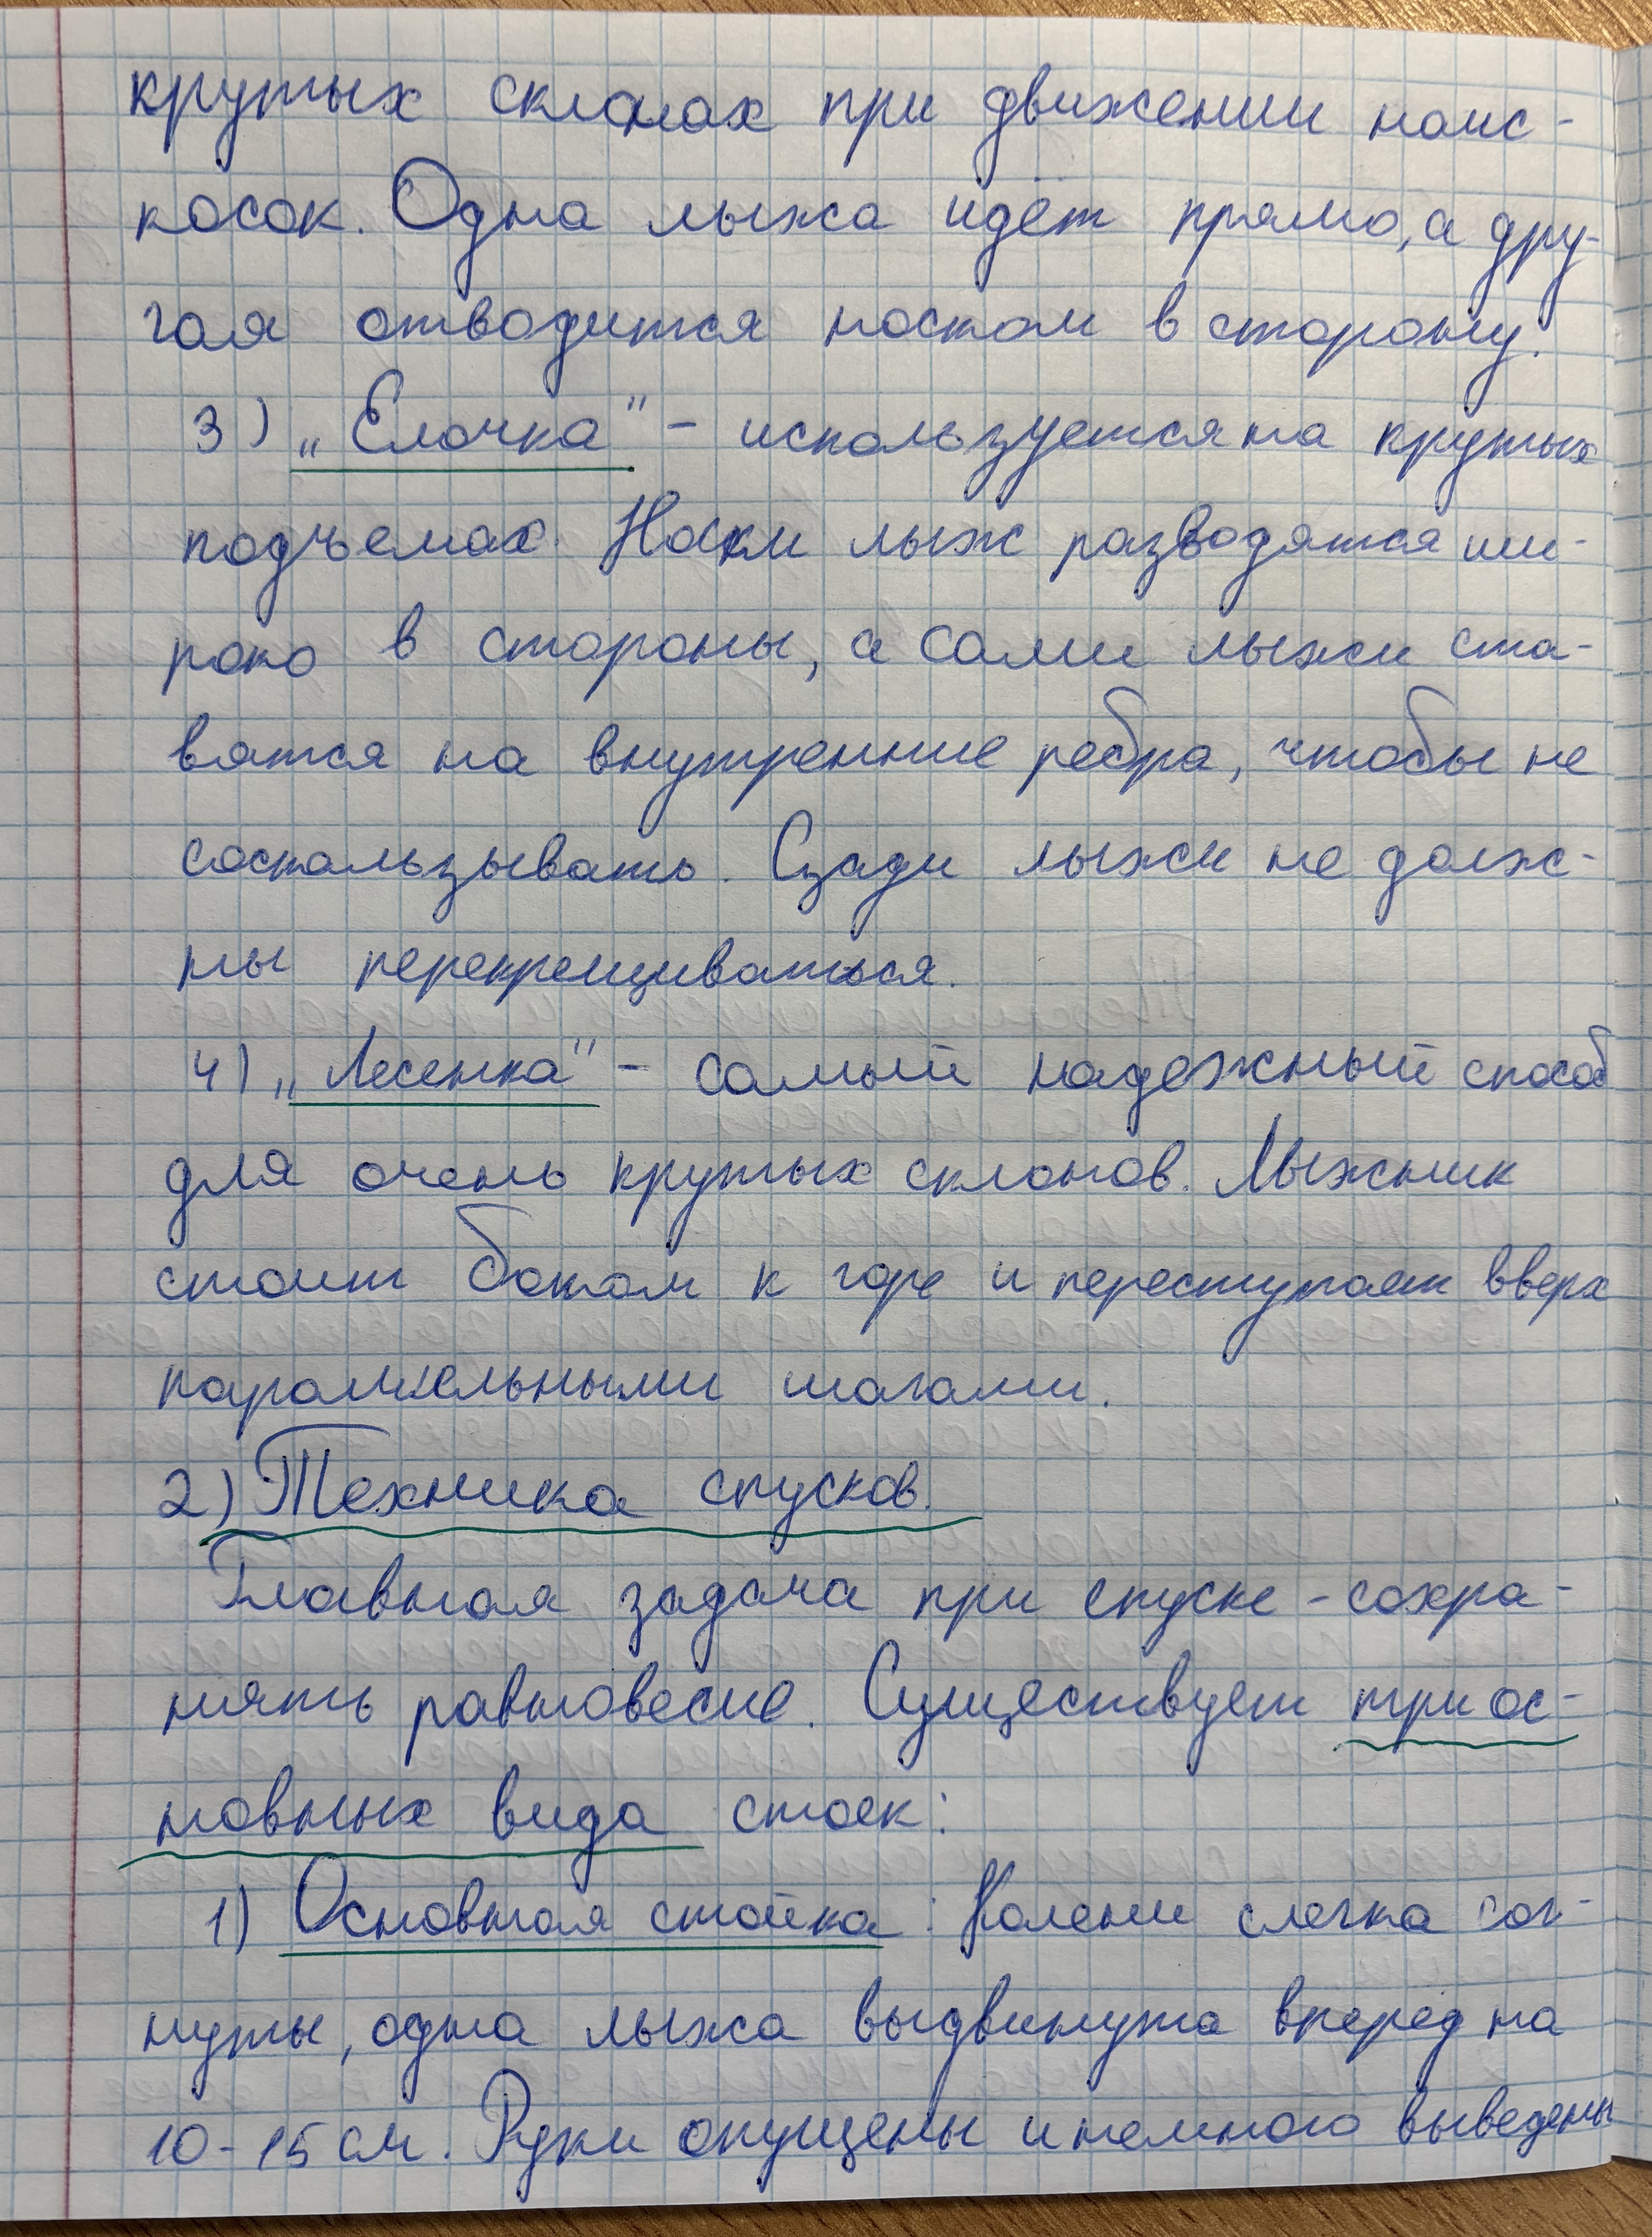 крутых склонах при движении наис-
косок. Одна лыжа идёт прямо, а дру-
гая отводится носком в сторону.
3) „Елочка" - используется на крутых
подъемах. Носки лыж разводятся ши-
роко в стороны, а сами лыжи ста-
вятся на внутренние ребра, чтобы не
соскальзывать. Сзади лыжи не долж-
ны перекрещиваться.
4) „Лесенка" - самый надежный способ
для очень крутых склонов. Лыжник
стоит боком к горе и переступает вверх
параллельными шагами.
2) Техника спусков.
Главная задача при спуске - сохра-
нять равновесие. Существует три ос-
новных вида стоек:
1) Основная стойка: Колени слегка сог-
нуты, одна лыжа выдвинута вперед на
10-15 см. Руки опущены и немного выведены